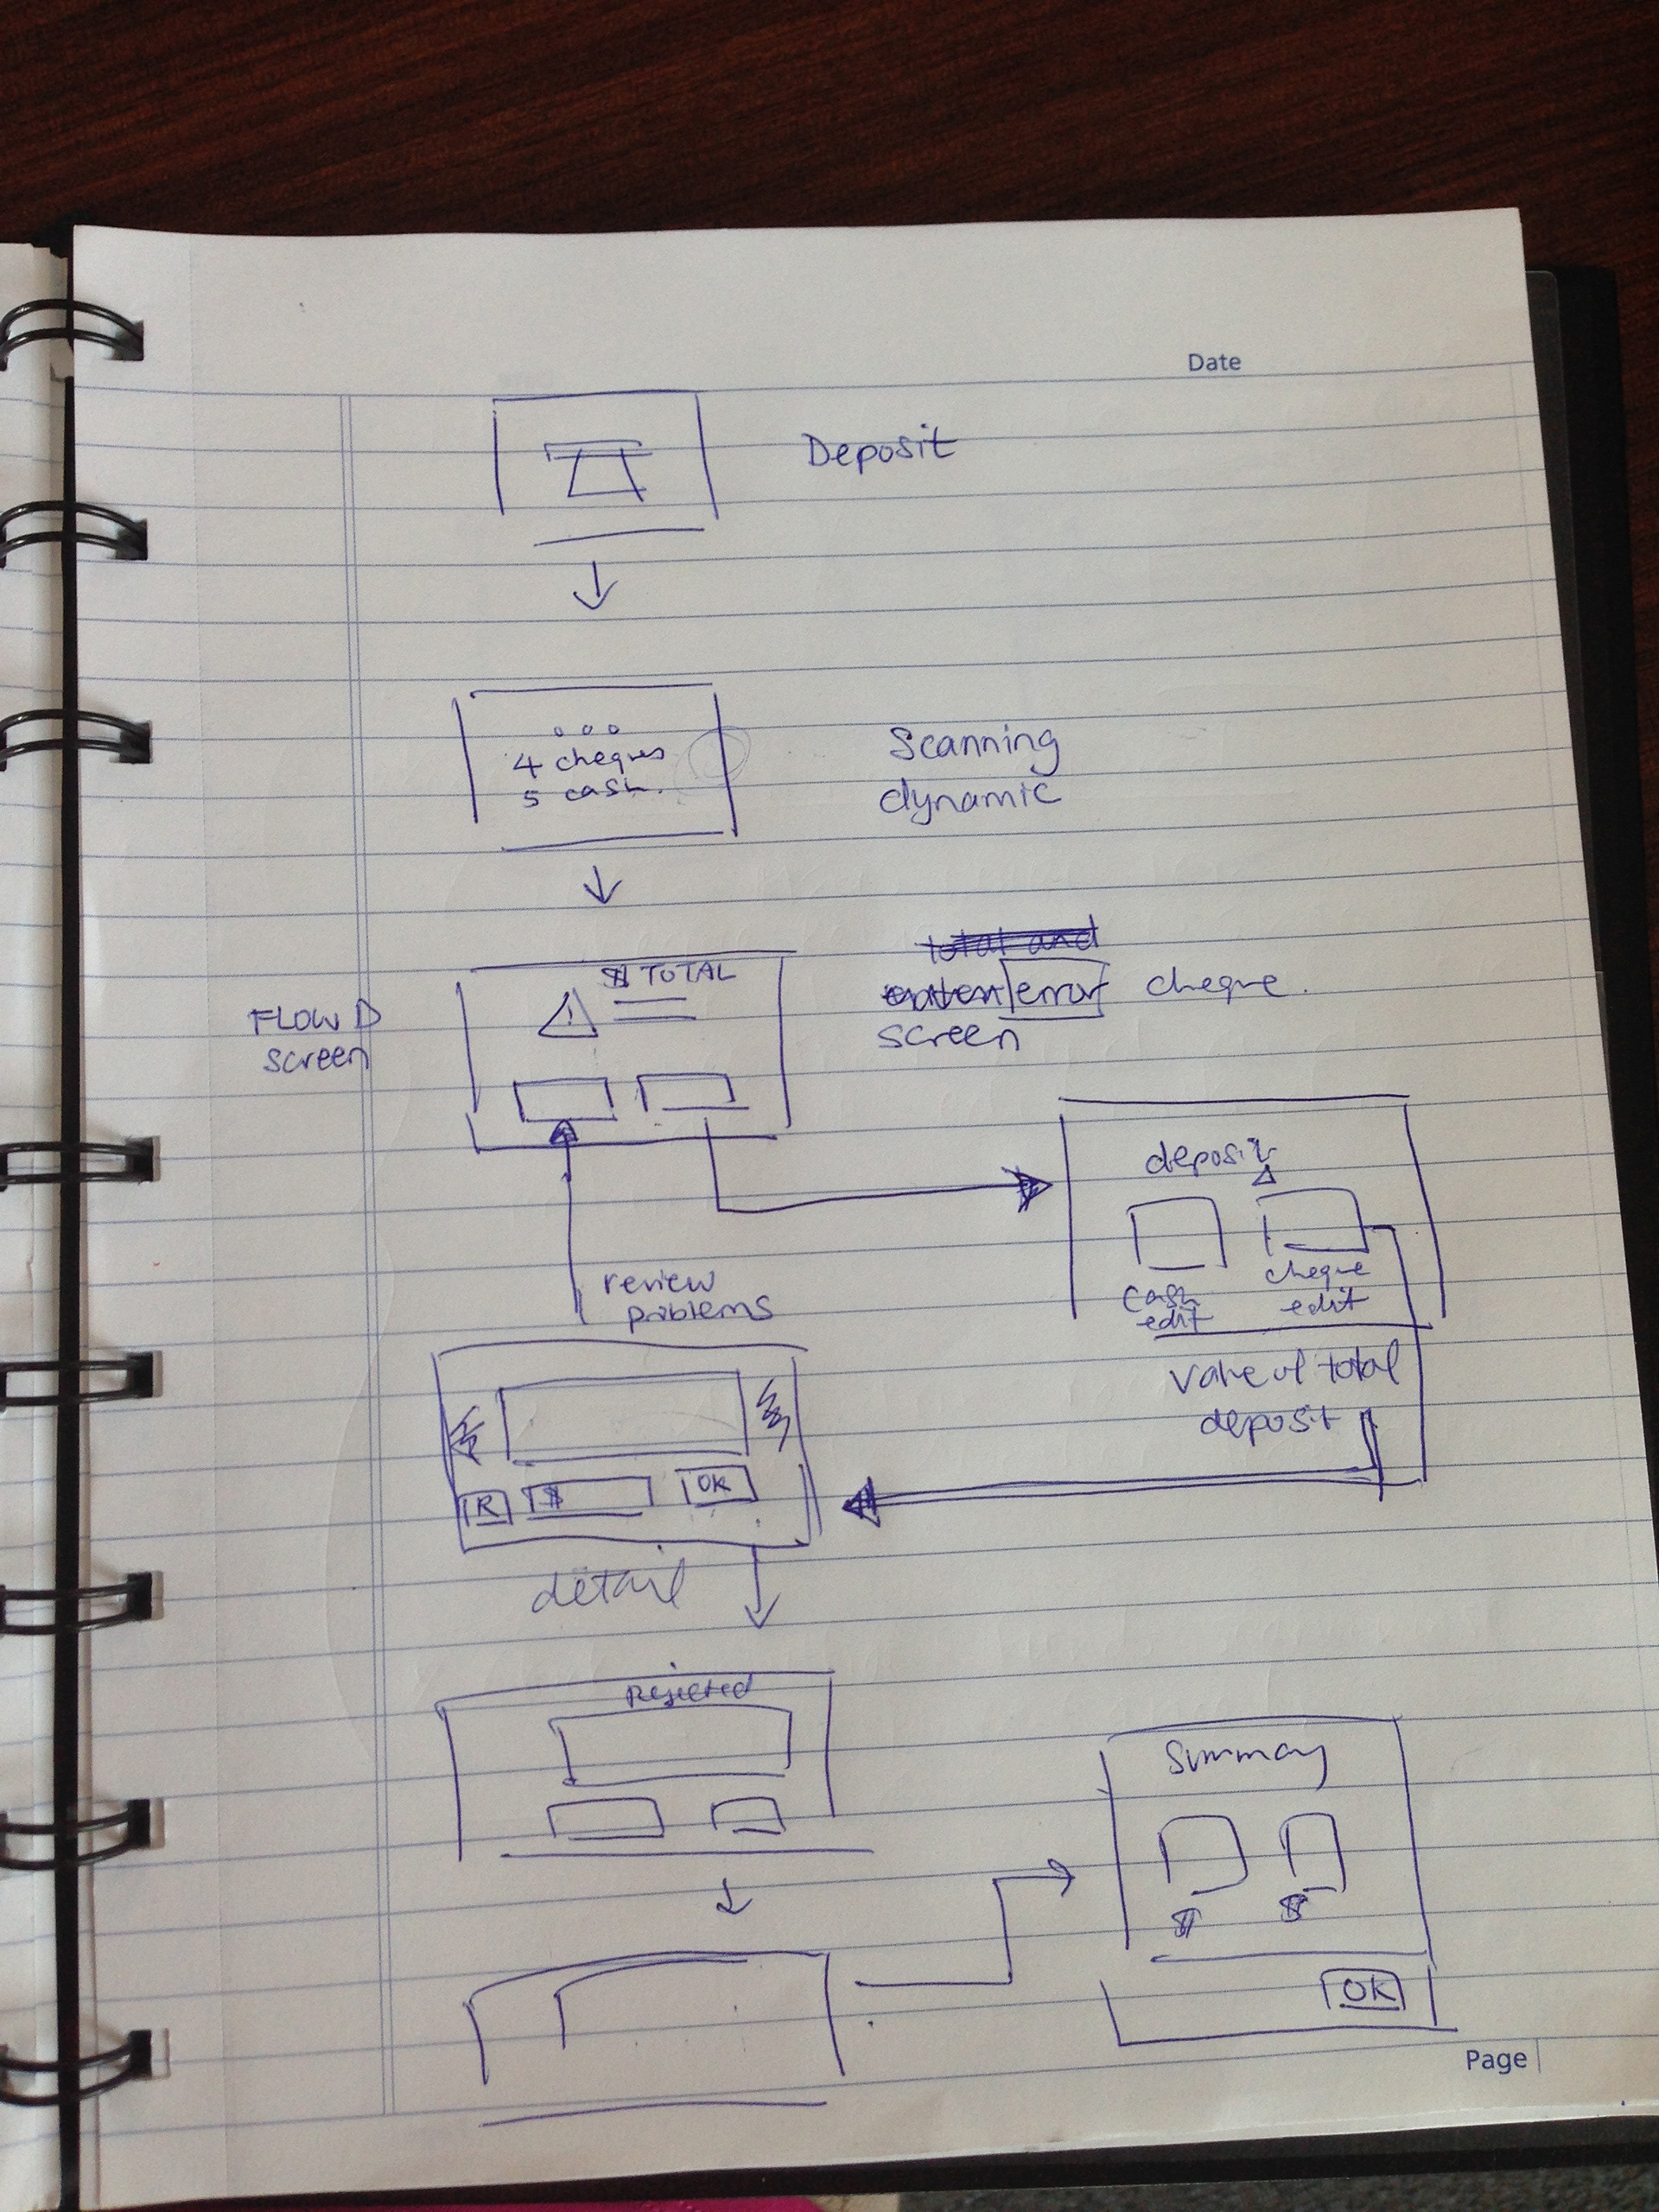 Date
Deposit
4 cheques
5 cash.
Scanning
dynamic
total and
$ TOTAL
error cheque.
screen
FLOW D
screen
!
deposit
cash
edit
cheque
edit
review
problems
value of total
deposit
R $ OK
detail
Rejected
Summary
$ $
OK
Page